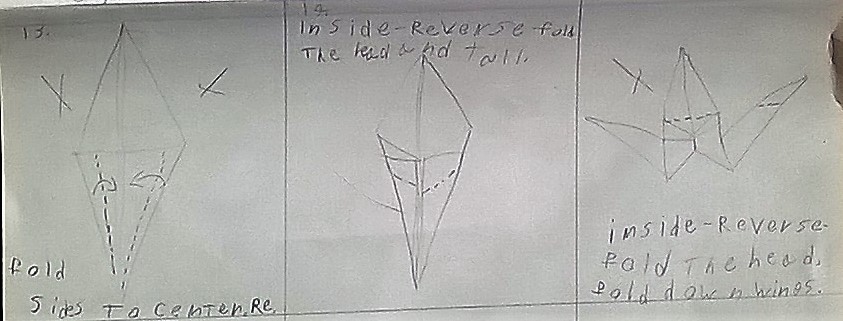 13.
fold
sides To center. Re.
14.
Inside-Reverse-fold
The head and tail.
inside-Reverse-
fold The head.
fold down wings.